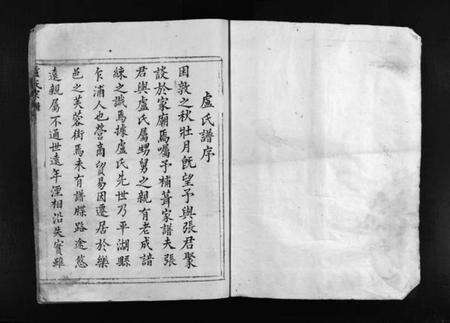 盧氏譜序
困敦之秋壮月既望予與張君聚
談於家廟焉囑予補葺家譜夫張
君與盧氏屬甥舅之親有老成諳
練之識焉據盧氏先世乃平湖縣
乍浦人也營商貿易因遷居於樂
邑之芙蓉街焉未有譜牒路途悠
遠親屬不通世遠年湮相沿失實雖